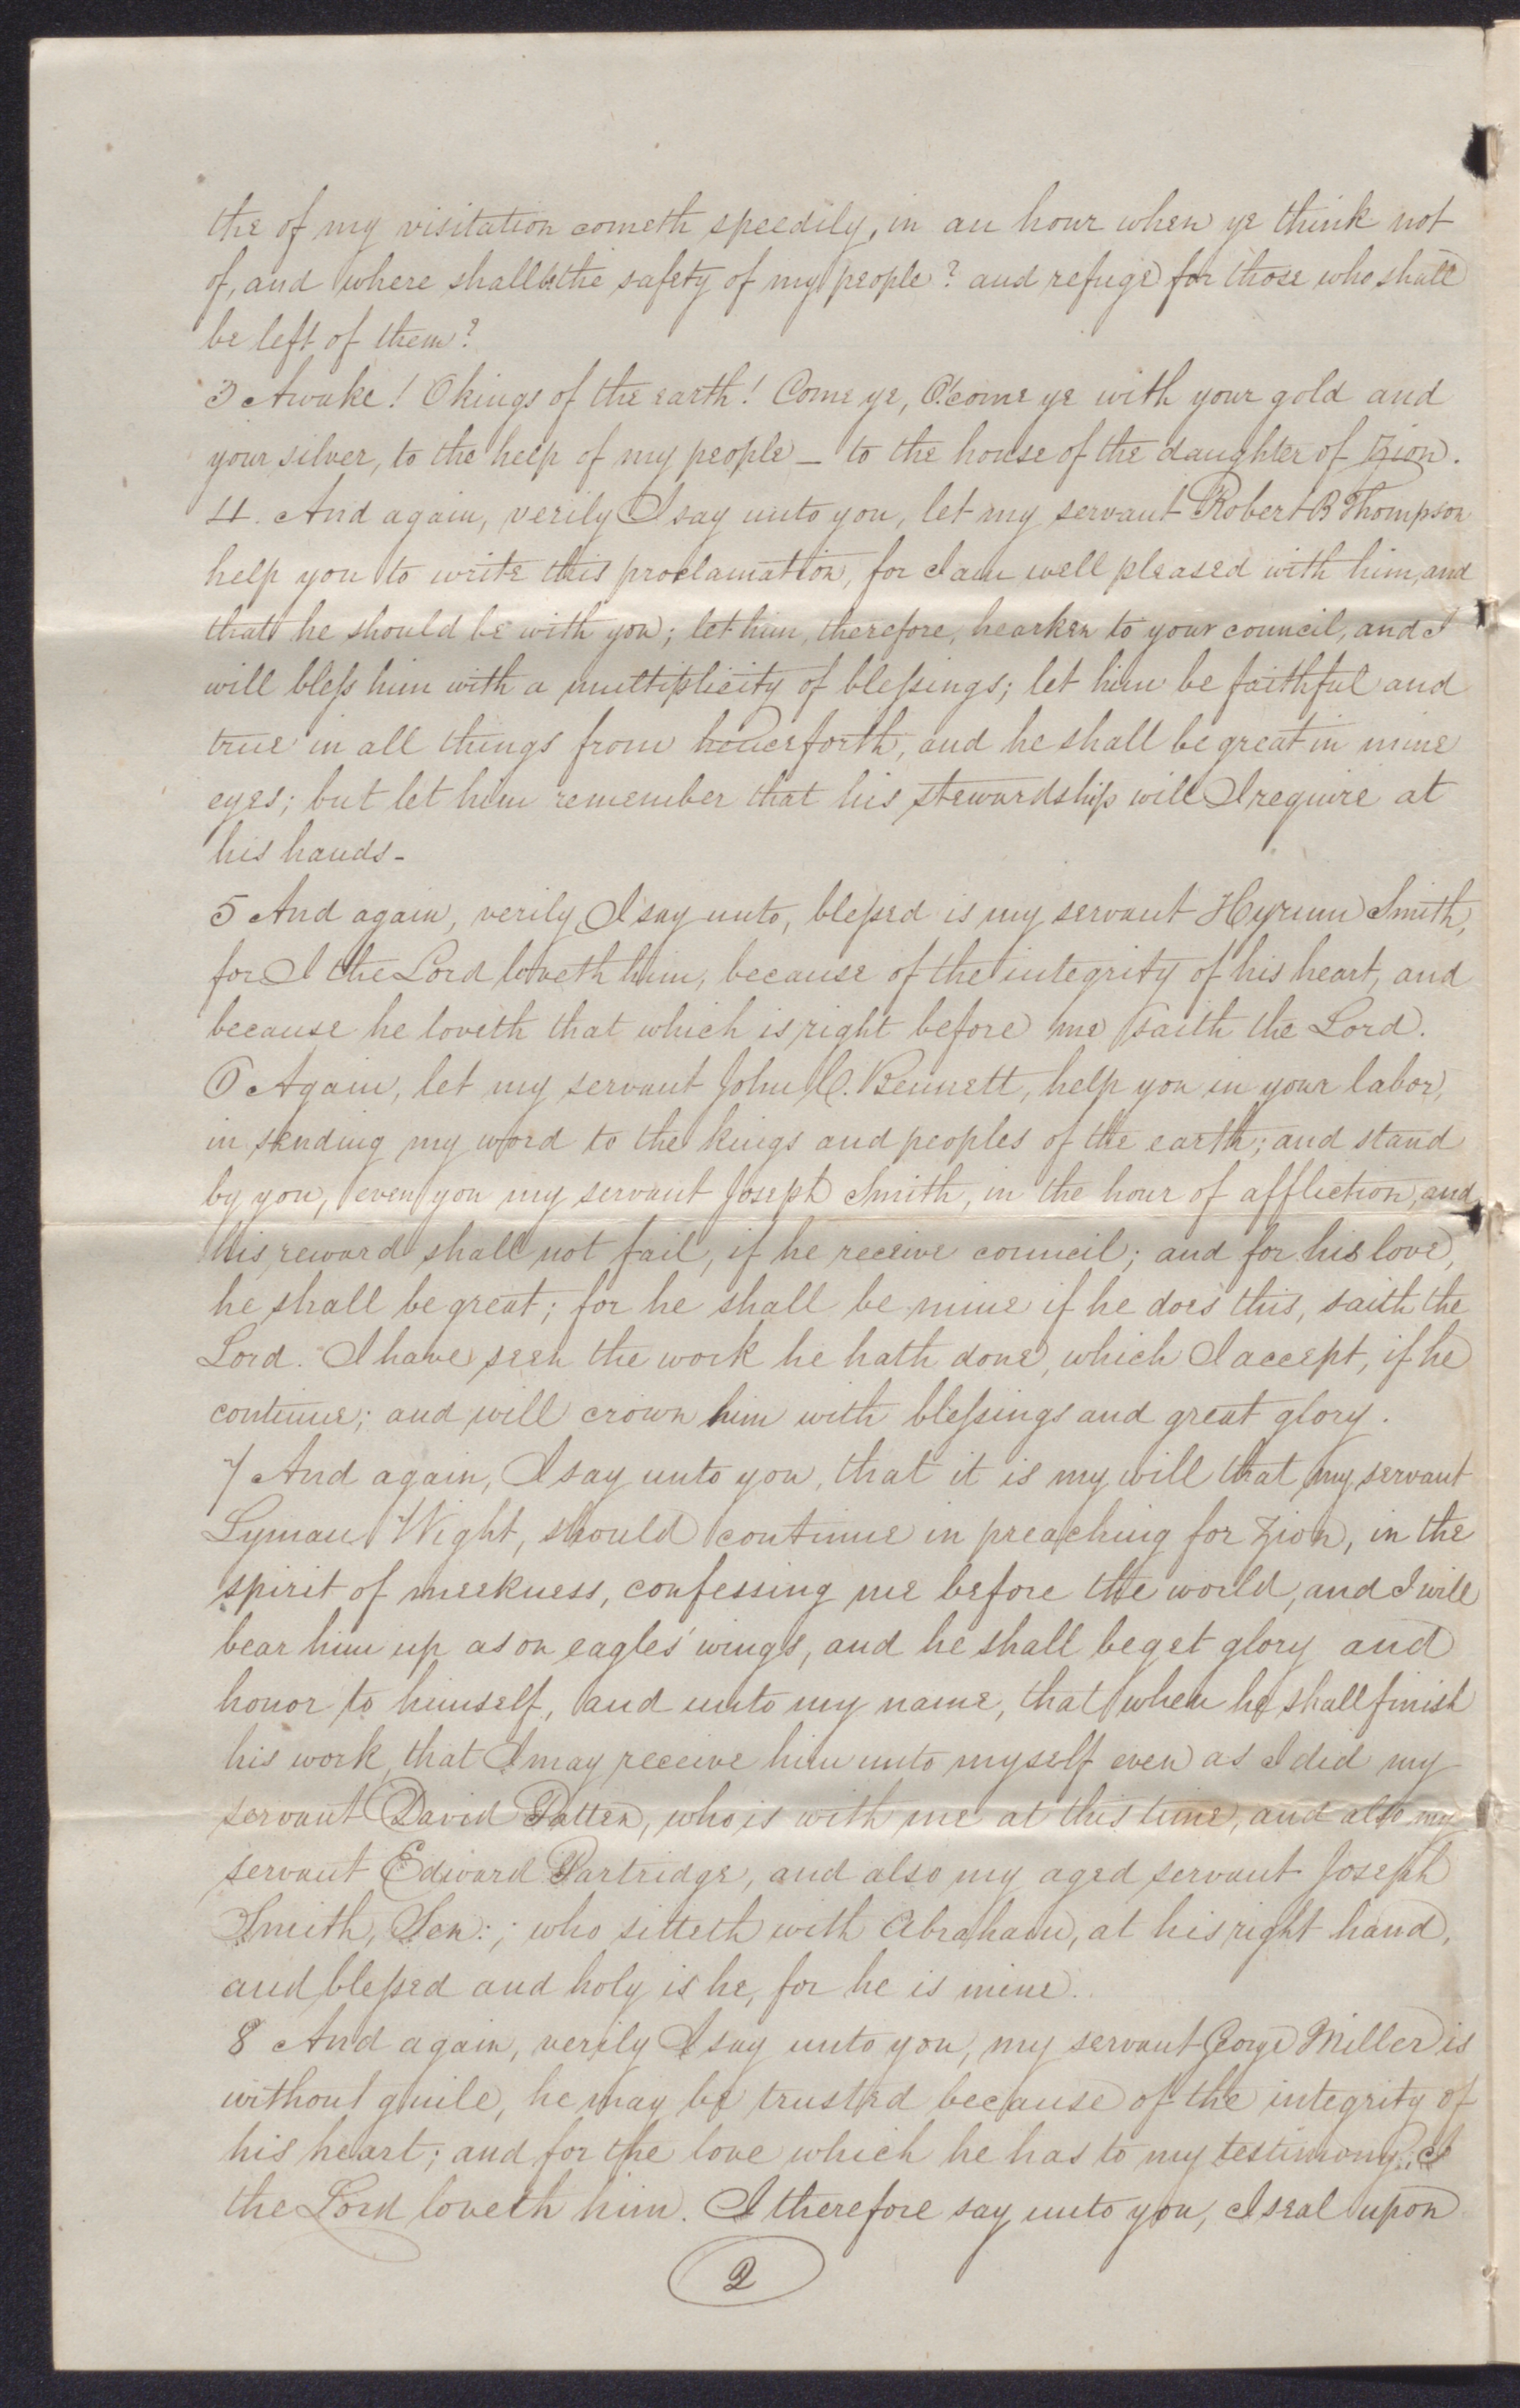 the of my visitation cometh speedily, in an hour when ye think not
of, and where shall be the safety of my people? and refuge for those who shall
be left of them?
3 Awake! O kings of the earth! Come ye, O! come ye with your gold and
your silver, to the help of my people — to the house of the daughter of Zion.
4. And again, verily I say unto you, let my servant Robert B Thompson
help you to write this proclamation, for I am well pleased with him, and
that he should be with you; let him, therefore, hearken to your council, and I
will bless him with a multiplicity of blessings; let him be faithful and
true in all things from henceforth, and he shall be great in mine
eyes; but let him remember that his stewardship will I require at
his hands-
5 And again, verily I say unto, blessed is my servant Hyrum Smith,
for I the Lord loveth him, because of the integrity of his heart, and
because he loveth that which is right before me saith the Lord.
6 Again, let my servant John C. Bennett, help you in your labor,
in sending my word to the kings and peoples of the earth; and stand
by you, even you my servant Joseph Smith, in the hour of affliction, and
his reward shall not fail, if he receive council; and for his love,
he shall be great; for he shall be mine if he does this, saith the
Lord. I have seen the work he hath done, which I accept, if he
continue; and will crown him with blessings and great glory.
7 And again, I say unto you, that it is my will that my servant
Lyman Wight, should continue in preaching for Zion, in the
spirit of meekness, confessing me before the world, and I will
bear him up as on eagles' wings, and he shall beget glory and
honor to himself, and unto my name, that when he shall finish
his work, that I may receive him unto myself even as I did my
servant David Patten, who is with me at this time, and also my
servant Edward Partridge, and also my aged servant Joseph
Smith, Sen:; who sitteth with Abraham, at his right hand,
and blessed and holy is he, for he is mine.
8 And again, verily I say unto you, my servant George Miller is
without guile, he may be trusted because of the integrity of
his heart; and for the love which he has to my testimony, I
the Lord loveth him. I therefore say unto you, I seal upon
2